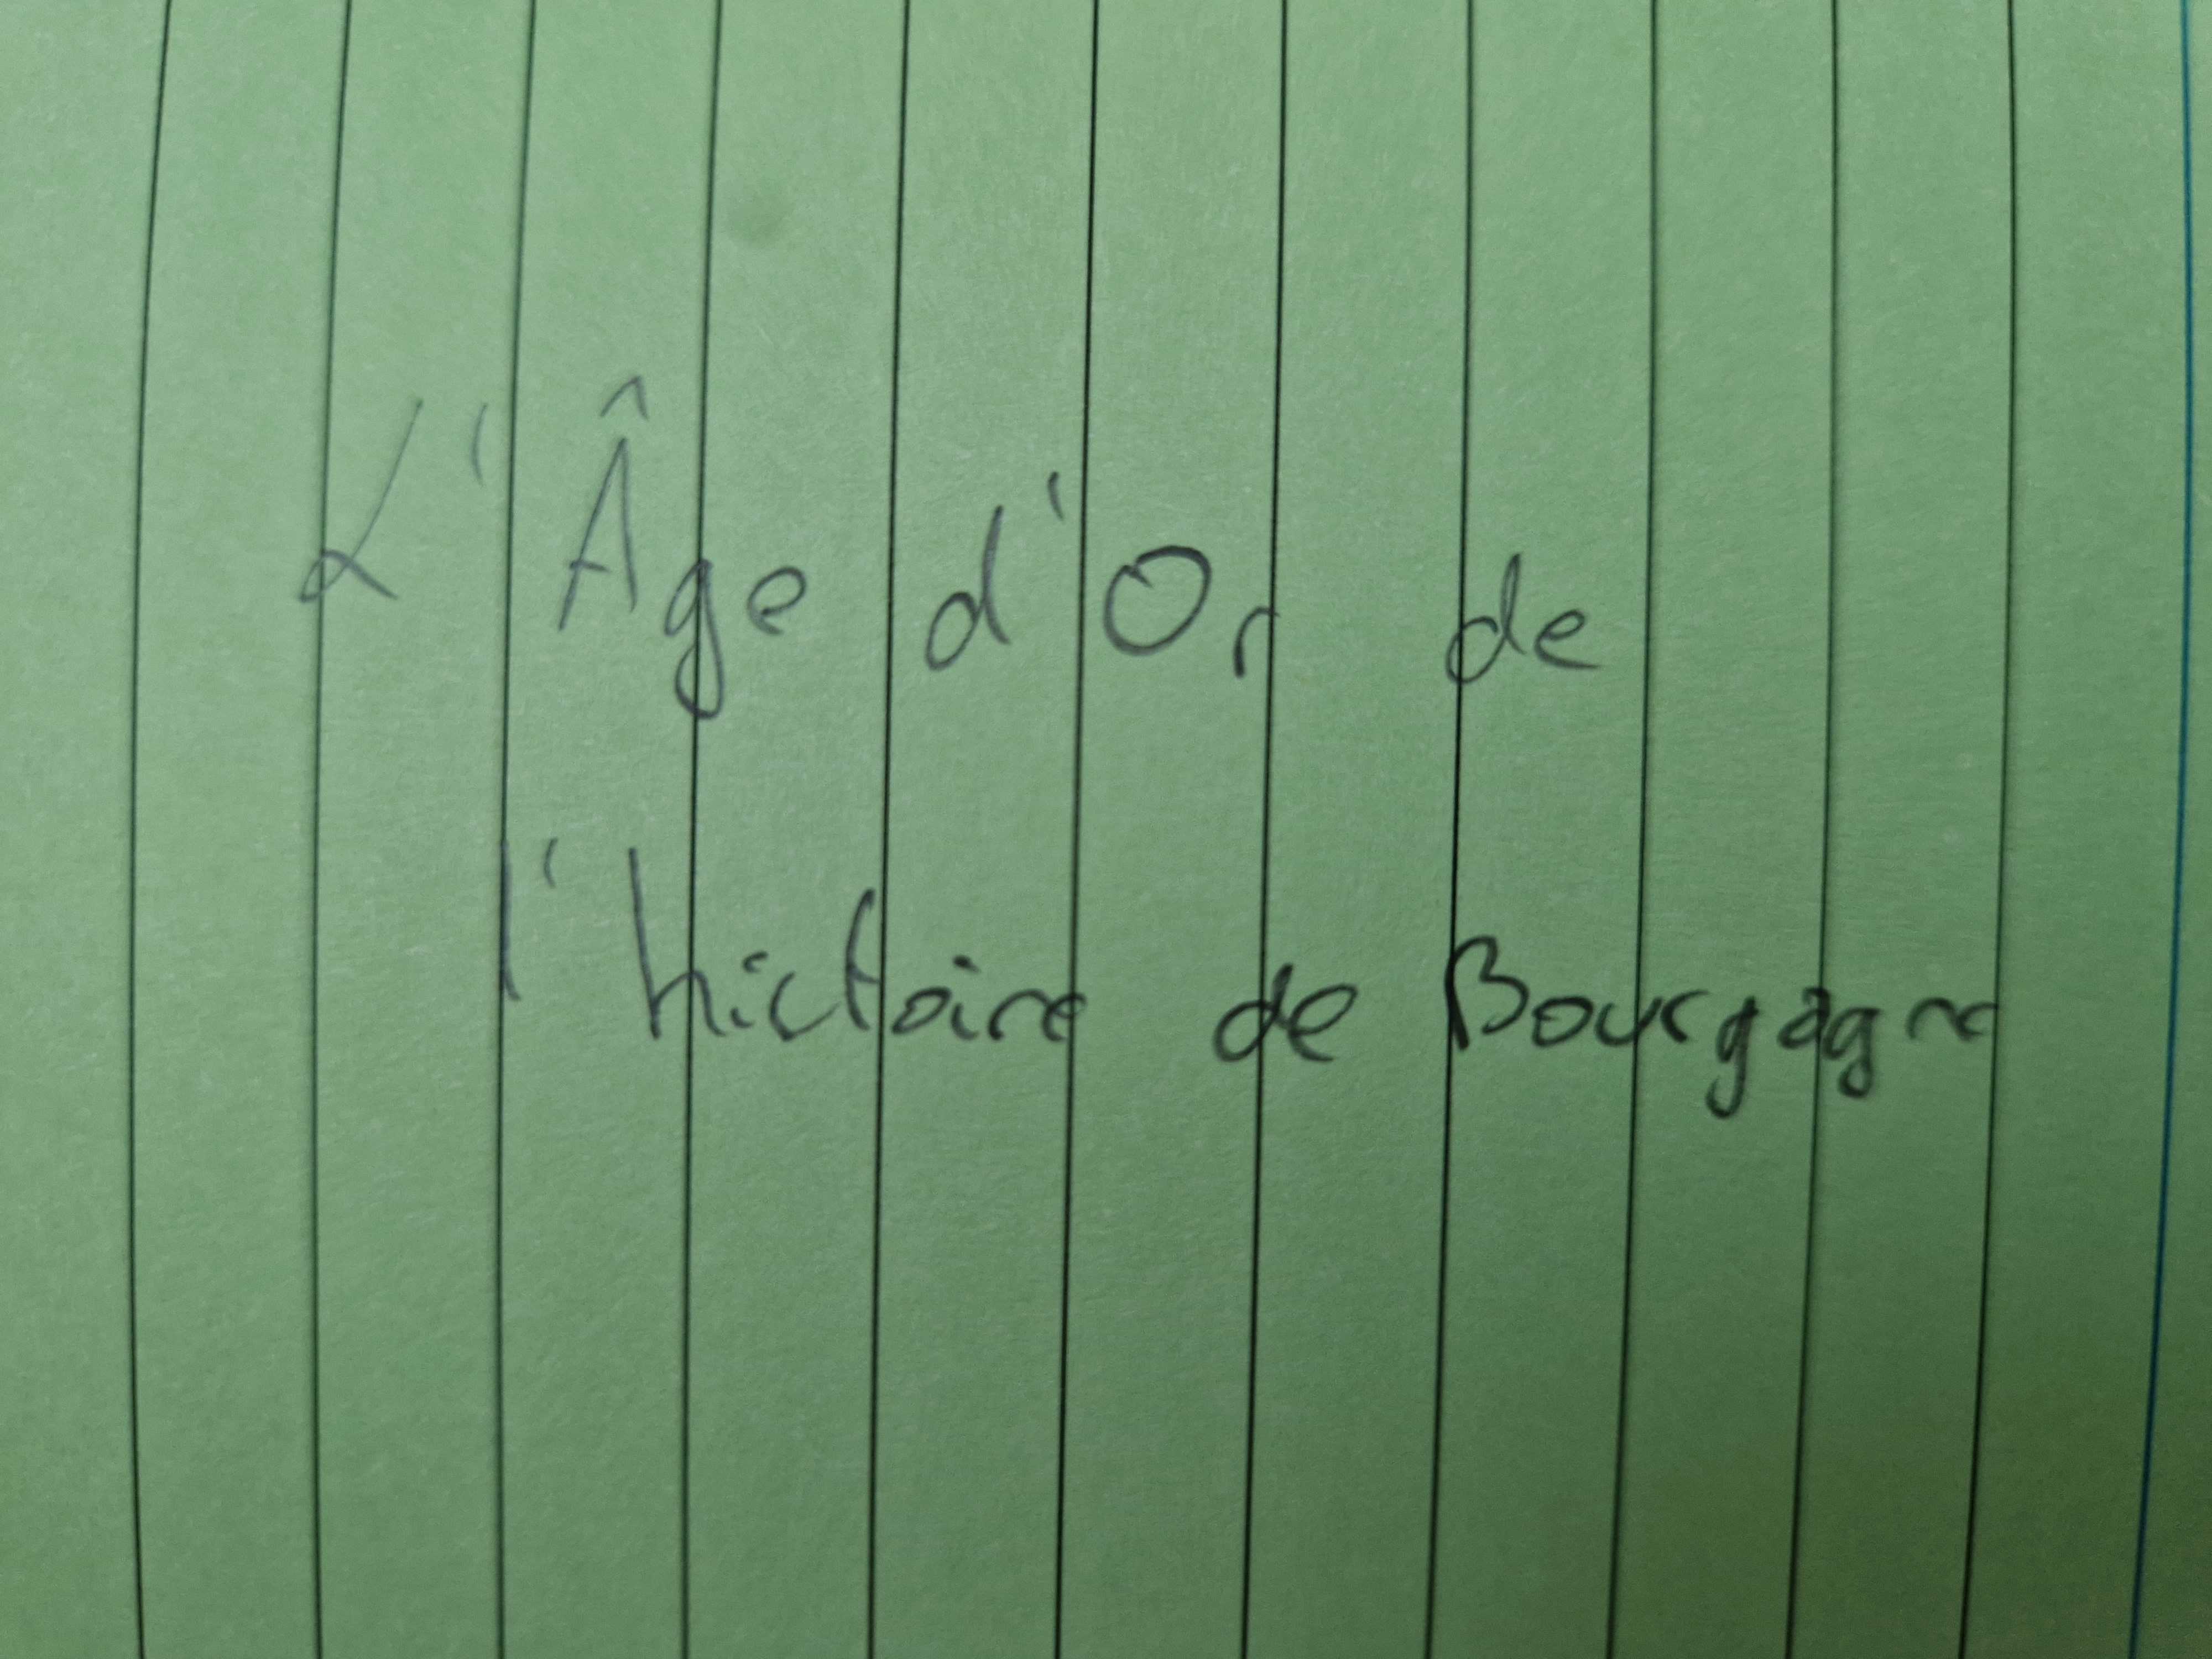 L'Âge d'Or de
l'histoire de Bourgagne